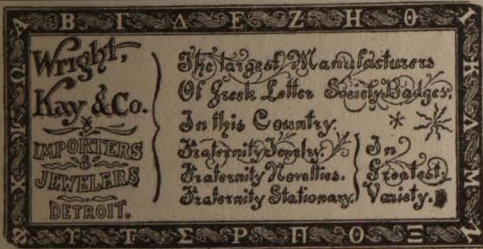 Α Β Γ Δ Ε Ζ Η Θ Ι
Κ Λ Μ Ν
Ξ Ο Π Ρ Σ Τ Υ Φ
Χ Ψ Ω
Wright,
Kay & Co.
IMPORTERS
&
JEWELERS
DETROIT.
The Largest Manufacturers
Of Greek Letter Society Badges,
In this Country.
Fraternity Jewelry.
Fraternity Novelties.
Fraternity Stationary.
In
Greatest
Variety.